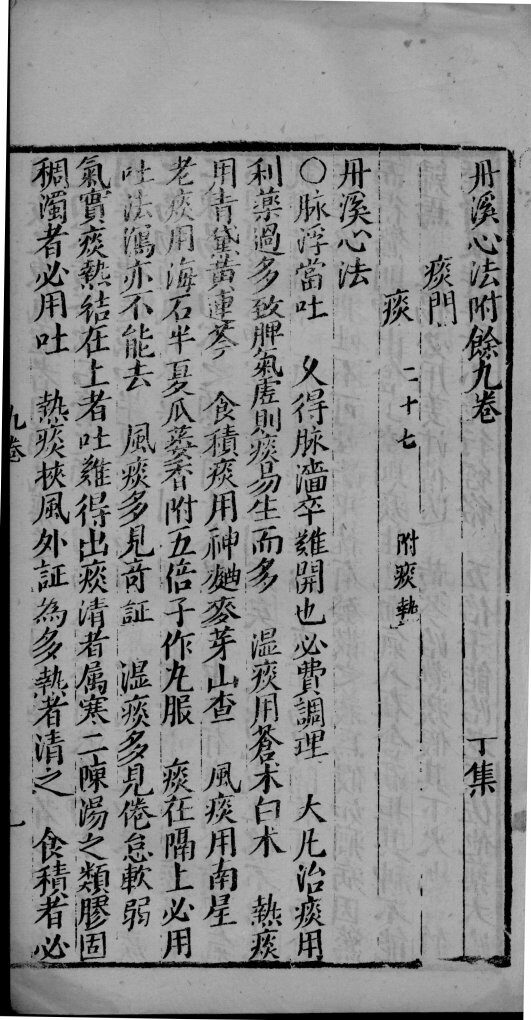 丹溪心法附餘九卷 丁集
痰門
痰 二十七 附痰熱
丹溪心法
○脉浮當吐 久得脉濇卒難開也必費調理 大凡治痰用
利藥過多致脾氣虛則痰易生而多 濕痰用蒼术白术 熱痰
用青黛黃連芩 食積痰用神麯麥芽山查 風痰用南星
老痰用海石半夏瓜蔞香附五倍子作丸服 痰在隔上必用
吐法瀉亦不能去 風痰多見奇証 濕痰多見倦怠軟弱
氣實痰熱結在上者吐難得出痰清者属寒二陳湯之類膠固
稠濁者必用吐 熱痰挾風外証為多熱者清之 食積者必
九卷 一